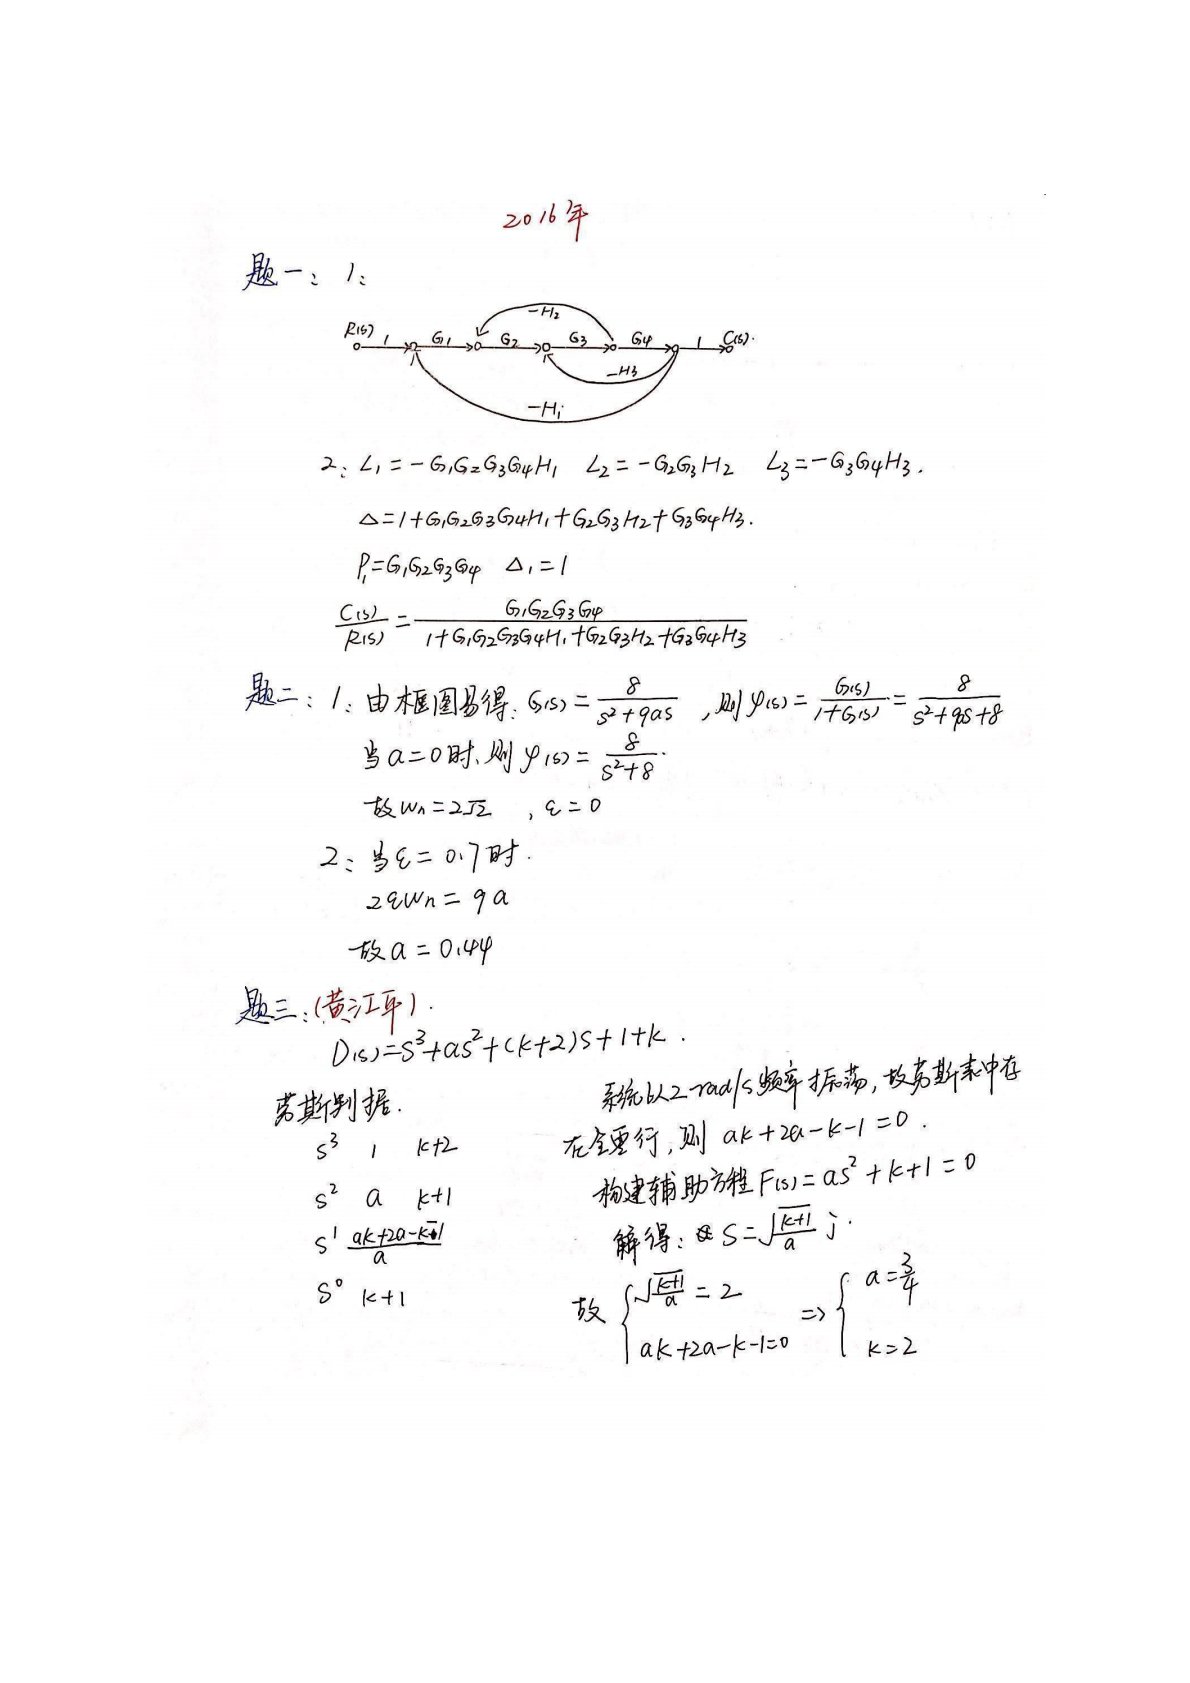 2016年
题一: 1:
R(s) 1 G1 G2 G3 G4 1 C(s).
-H2
-H3
-H1
2: L1=-G1G2G3G4H1 L2=-G2G3H2 L3=-G3G4H3.
△=1+G1G2G3G4H1+G2G3H2+G3G4H3.
P1=G1G2G3G4 △1=1
C(s)/R(s) = G1G2G3G4/(1+G1G2G3G4H1+G2G3H2+G3G4H3)
题二: 1: 由框图易得: G(s)=8/(s²+9as) ,则φ(s)=G(s)/(1+G(s))=8/(s²+9as+8)
当a=0时、则φ(s)=8/(s²+8).
故Wn=2√2 , ξ=0
2: 当ξ=0.7时.
2ξWn=9a
故a=0.44
题三:(黄江平).
D(s)=S³+as²+(k+2)S+1+k.
劳斯判据.
S³ 1 k+2
S² a k+1
S¹ (ak+2a-k-1)/a
S⁰ k+1
系统以2rad/s频率振荡,故劳斯表中存
在全零行,则 ak+2a-k-1=0.
构建辅助方程F(s)=as²+k+1=0
解得: S=√((k+1)/a) j.
故 { √((k+1)/a)=2 => { a=3/4
ak+2a-k-1=0 k=2